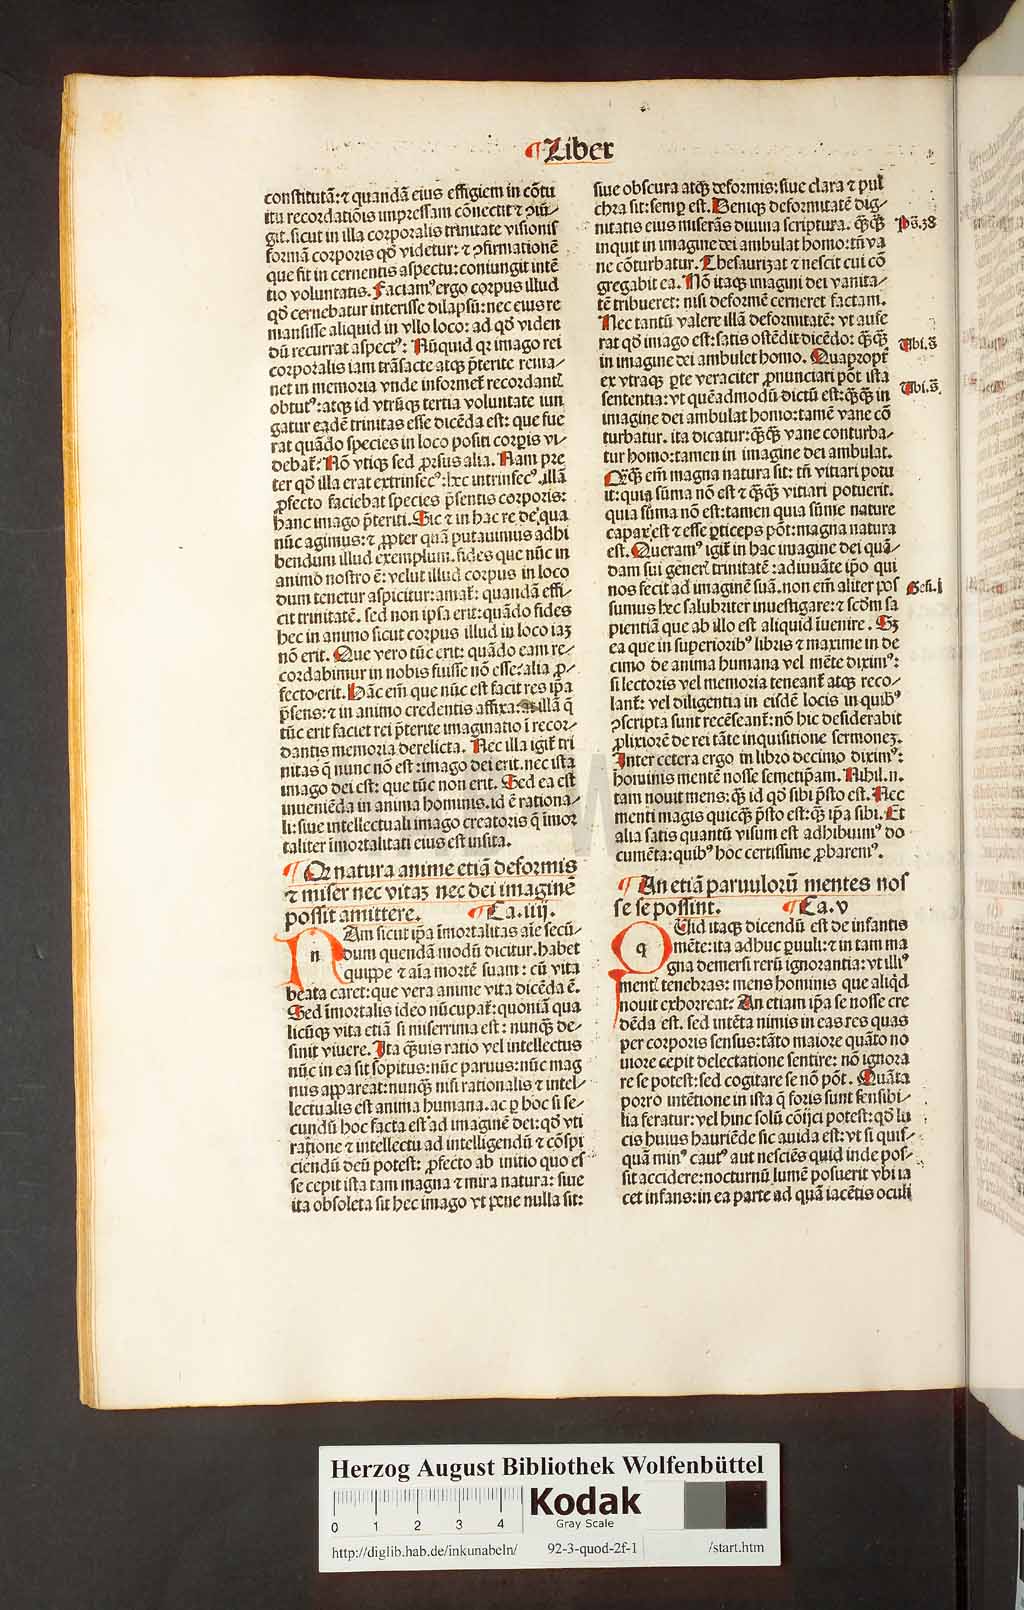 ¶Liber
constitutā: ⁊ quandā eius effigiem in cōtu
itu recordatiōis impressam cōnectit ⁊ ꝯiū⸗
git. sicut in illa corporalis trinitate visionis
formā corporis qď videtur: ⁊ ꝯfirmationē
que fit in cernentis aspectu: coniungit intē
tio voluntatis. Faciamꝰ ergo corpus illud
qď cernebatur interisse dilapsū: nec eius re
mansisse aliquid in vllo loco: ad qď viden
dū recurrat aspectꝰ: Nūquid qꝛ imago rei
corporalis iam trāsacte atqꝫ p̄terite rema⸗
net in memoria vnde informet̄ recordant̄
obtutꝰ: atqꝫ id vtrūqꝫ tertia voluntate iun
gatur eadē trinitas esse dicēda est: que fue
rat quādo species in loco positi corpis vi⸗
debat̄: Nō vtiqꝫ sed ꝓrsus alia. Nam pre
ter qď illa erat extrinsecꝰ: hec intrinsecꝰ. illā
ꝓfecto faciebat species p̄sentis corporis:
hanc imago p̄teriti. Sic ⁊ in hac re de qua
nūc agimus: ⁊ ꝓpter quā putauimus adhi
bendum illud exemplum. fides que nūc in
animo nostro ē: velut illud corpus in loco
dum tenetur aspicitur: amat̄: quandā effi⸗
cit trinitatē. sed non ipsa erit: quādo fides
hec in animo sicut corpus illud in loco iaꝫ
nō erit. Que vero tūc erit: quādo eam re⸗
cordabimur in nobis fuisse nō esse: alia ꝓ⸗
fecto erit. Hāc em̄ que nūc est facit res ip̄a
p̄sens: ⁊ in animo credentis affixa: illā q̄
tūc erit faciet rei p̄terite imaginatio ī recor⸗
dantis memoria derelicta. Nec illa igit̄ tri
nitas q̄ nunc nō est: imago dei erit. nec ista
imago dei est: que tūc non erit. Sed ea est
inueniēda in anima hominis. id ē rationa⸗
li: siue intellectuali imago creatoris q̄ imor
taliter īmortalitati eius est insita.
¶Qꝙ natura anime etiā deformis
⁊ miser nec vitaꝫ nec dei imaginē
possit amittere. ¶Ca. iiij.
nAm sicut ip̄a īmortalitas aīe secū⸗
dum quendā modū dicitur. habet
quippe ⁊ aīa mortē suam: cū vita
beata caret: que vera anime vita dicēda ē.
Sed īmortalis ideo nūcupat̄: quoniā qua
licūqꝫ vita etiā si miserrima est: nunqꝫ de⸗
sinit viuere. Ita qꝫuis ratio vel intellectus
nūc in ea sit sopitus: nūc paruus: nūc mag
nus appareat: nunqꝫ nisi rationalis ⁊ intel⸗
lectualis est anima humana. ac ꝑ hoc si se⸗
cundū hoc facta est ad imaginē dei: qď vti
ratione ⁊ intellectu ad intelligendū ⁊ cōspi
ciendū deū potest: ꝓfecto ab initio quo es
se cepit ista tam magna ⁊ mira natura: siue
ita obsoleta sit hec imago vt pene nulla sit:
siue obscura atqꝫ deformis: siue clara ⁊ pul
chra sit: semꝑ est. Deniqꝫ deformitatē dig⸗
nitatis eius miserās diuina scriptura. qꝫqꝫ
inquit in imagine dei ambulat homo: tn̄ va
ne cōturbatur. Thesaurizat ⁊ nescit cui cō
gregabit ea. Nō itaqꝫ imagini dei vanita⸗
tē tribueret: nisi deformē cerneret factam.
Nec tantū valere illā deformitatē: vt aufe
rat qď imago est: satis ostēdit dicēdo: qꝫqꝫ
in imagine dei ambulet homo. Quapropt̄
ex vtraqꝫ ꝑte veraciter ꝓnunciari pōt ista
sententia: vt quēadmodū dictū est: qꝫqꝫ in
imagine dei ambulat homo: tamē vane cō
turbatur. ita dicatur: qꝫqꝫ vane conturba⸗
tur homo: tamen in imagine dei ambulat.
Qꝫqꝫ em̄ magna natura sit: tn̄ vitiari potu
it: quia sūma nō est ⁊ qꝫqꝫ vitiari potuerit.
quia sūma nō est: tamen quia sūme nature
capax est ⁊ esse ꝑticeps pōt: magna natura
est. Queramꝰ igit̄ in hac imagine dei quā⸗
dam sui gener̄ trinitatē: adiuuāte ip̄o qui
nos fecit ad imaginē suā. non em̄ aliter pos
sumus hec salubriter inuestigare: ⁊ scďm sa
pientiā que ab illo est aliquid īuenire. Sꝫ
ea que in superioribꝰ libris ⁊ maxime in de
cimo de anima humana vel mēte diximꝰ:
si lectoris vel memoria teneant̄ atqꝫ reco⸗
lant̄: vel diligentia in eisdē locis in quibꝰ
ꝯscripta sunt recēseant̄: nō hic desiderabit
ꝓlixiorē de rei tāte inquisitione sermoneꝫ.
Inter cetera ergo in libro decimo diximꝰ:
hominis mentē nosse semetip̄am. Nihil. n.
tam nouit mens: qꝫ id qď sibi p̄sto est. Nec
menti magis quicqꝫ p̄sto est: qꝫ ip̄a sibi. Et
alia satis quantū visum est adhibuimꝰ do
cumēta: quibꝰ hoc certissime ꝓbaremꝰ.
¶An etiā paruulorū mentes nos
se se possint. ¶Ca. v
qUid itaqꝫ dicendū est de infantis
mēte: ita adhuc ꝑuuli: ⁊ in tam ma
gna demersi rerū ignorantia: vt illiꝰ
ment̄ tenebras: mens hominis que aliqď
nouit exhorreat: An etiam ip̄a se nosse cre
dēda est. sed intēta nimis in eas res quas
per corporis sensus: tāto maiore quāto no
uiore cepit delectatione sentire: nō ignora
re se potest: sed cogitare se nō pōt. Quāta
porro intētione in ista q̄ foris sunt sensibi⸗
lia feratur: vel hinc solū cōijci potest: qď lu
cis huius hauriēde sic auida est: vt si quis⸗
quā minꝰ cautꝰ aut nesciēs quid inde pos⸗
sit accidere: nocturnū lumē posuerit vbi ia
cet infans: in ea parte ad quā iacētis oculi
Ps̄. 38
Vbi. s̄
Vbi. s̄.
Gen̄. i
Herzog August Bibliothek Wolfenbüttel
0 1 2 3 4
Kodak
Gray Scale
http://diglib.hab.de/inkunabeln/ 92-3-quod-2f-1 /start.htm